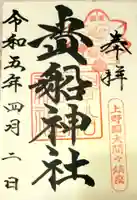 奉拝
貴船神社
上野國大間々鎮座
令和五年四月二日